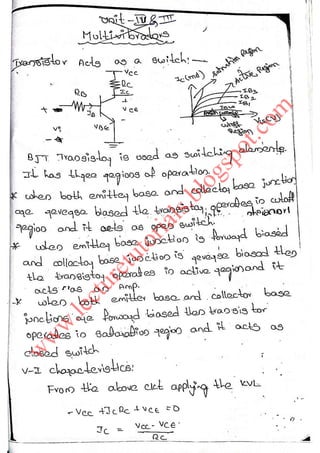 Unit - IV & III
Multivibrators
Transistor Acts as a switch:-
VCC
RC
IC
RB
IB
VCE
VBE
IC(mA)
Saturation Region
Active Region
IB3
IB2
IB1
VCE(V)
Region
BJT Transistor is used as switching elements.
It has three regions of operation.
* when both emitter base and collector base junction
are reverse biased the transistor operates in cutoff
region and it acts as open switch.
* when emitter base junction is forward biased
and collector base junction is reverse biased then
the transistor operates in active region and it
acts as an Amp.
* when both emitter base and collector base
junctions are forward biased then transistor
operates in saturation region and it acts as
closed switch
V-I characteristics:
From the above ckt applying the KVL
-VCC + ICRC + VCE = 0
IC = VCC - VCE
RC